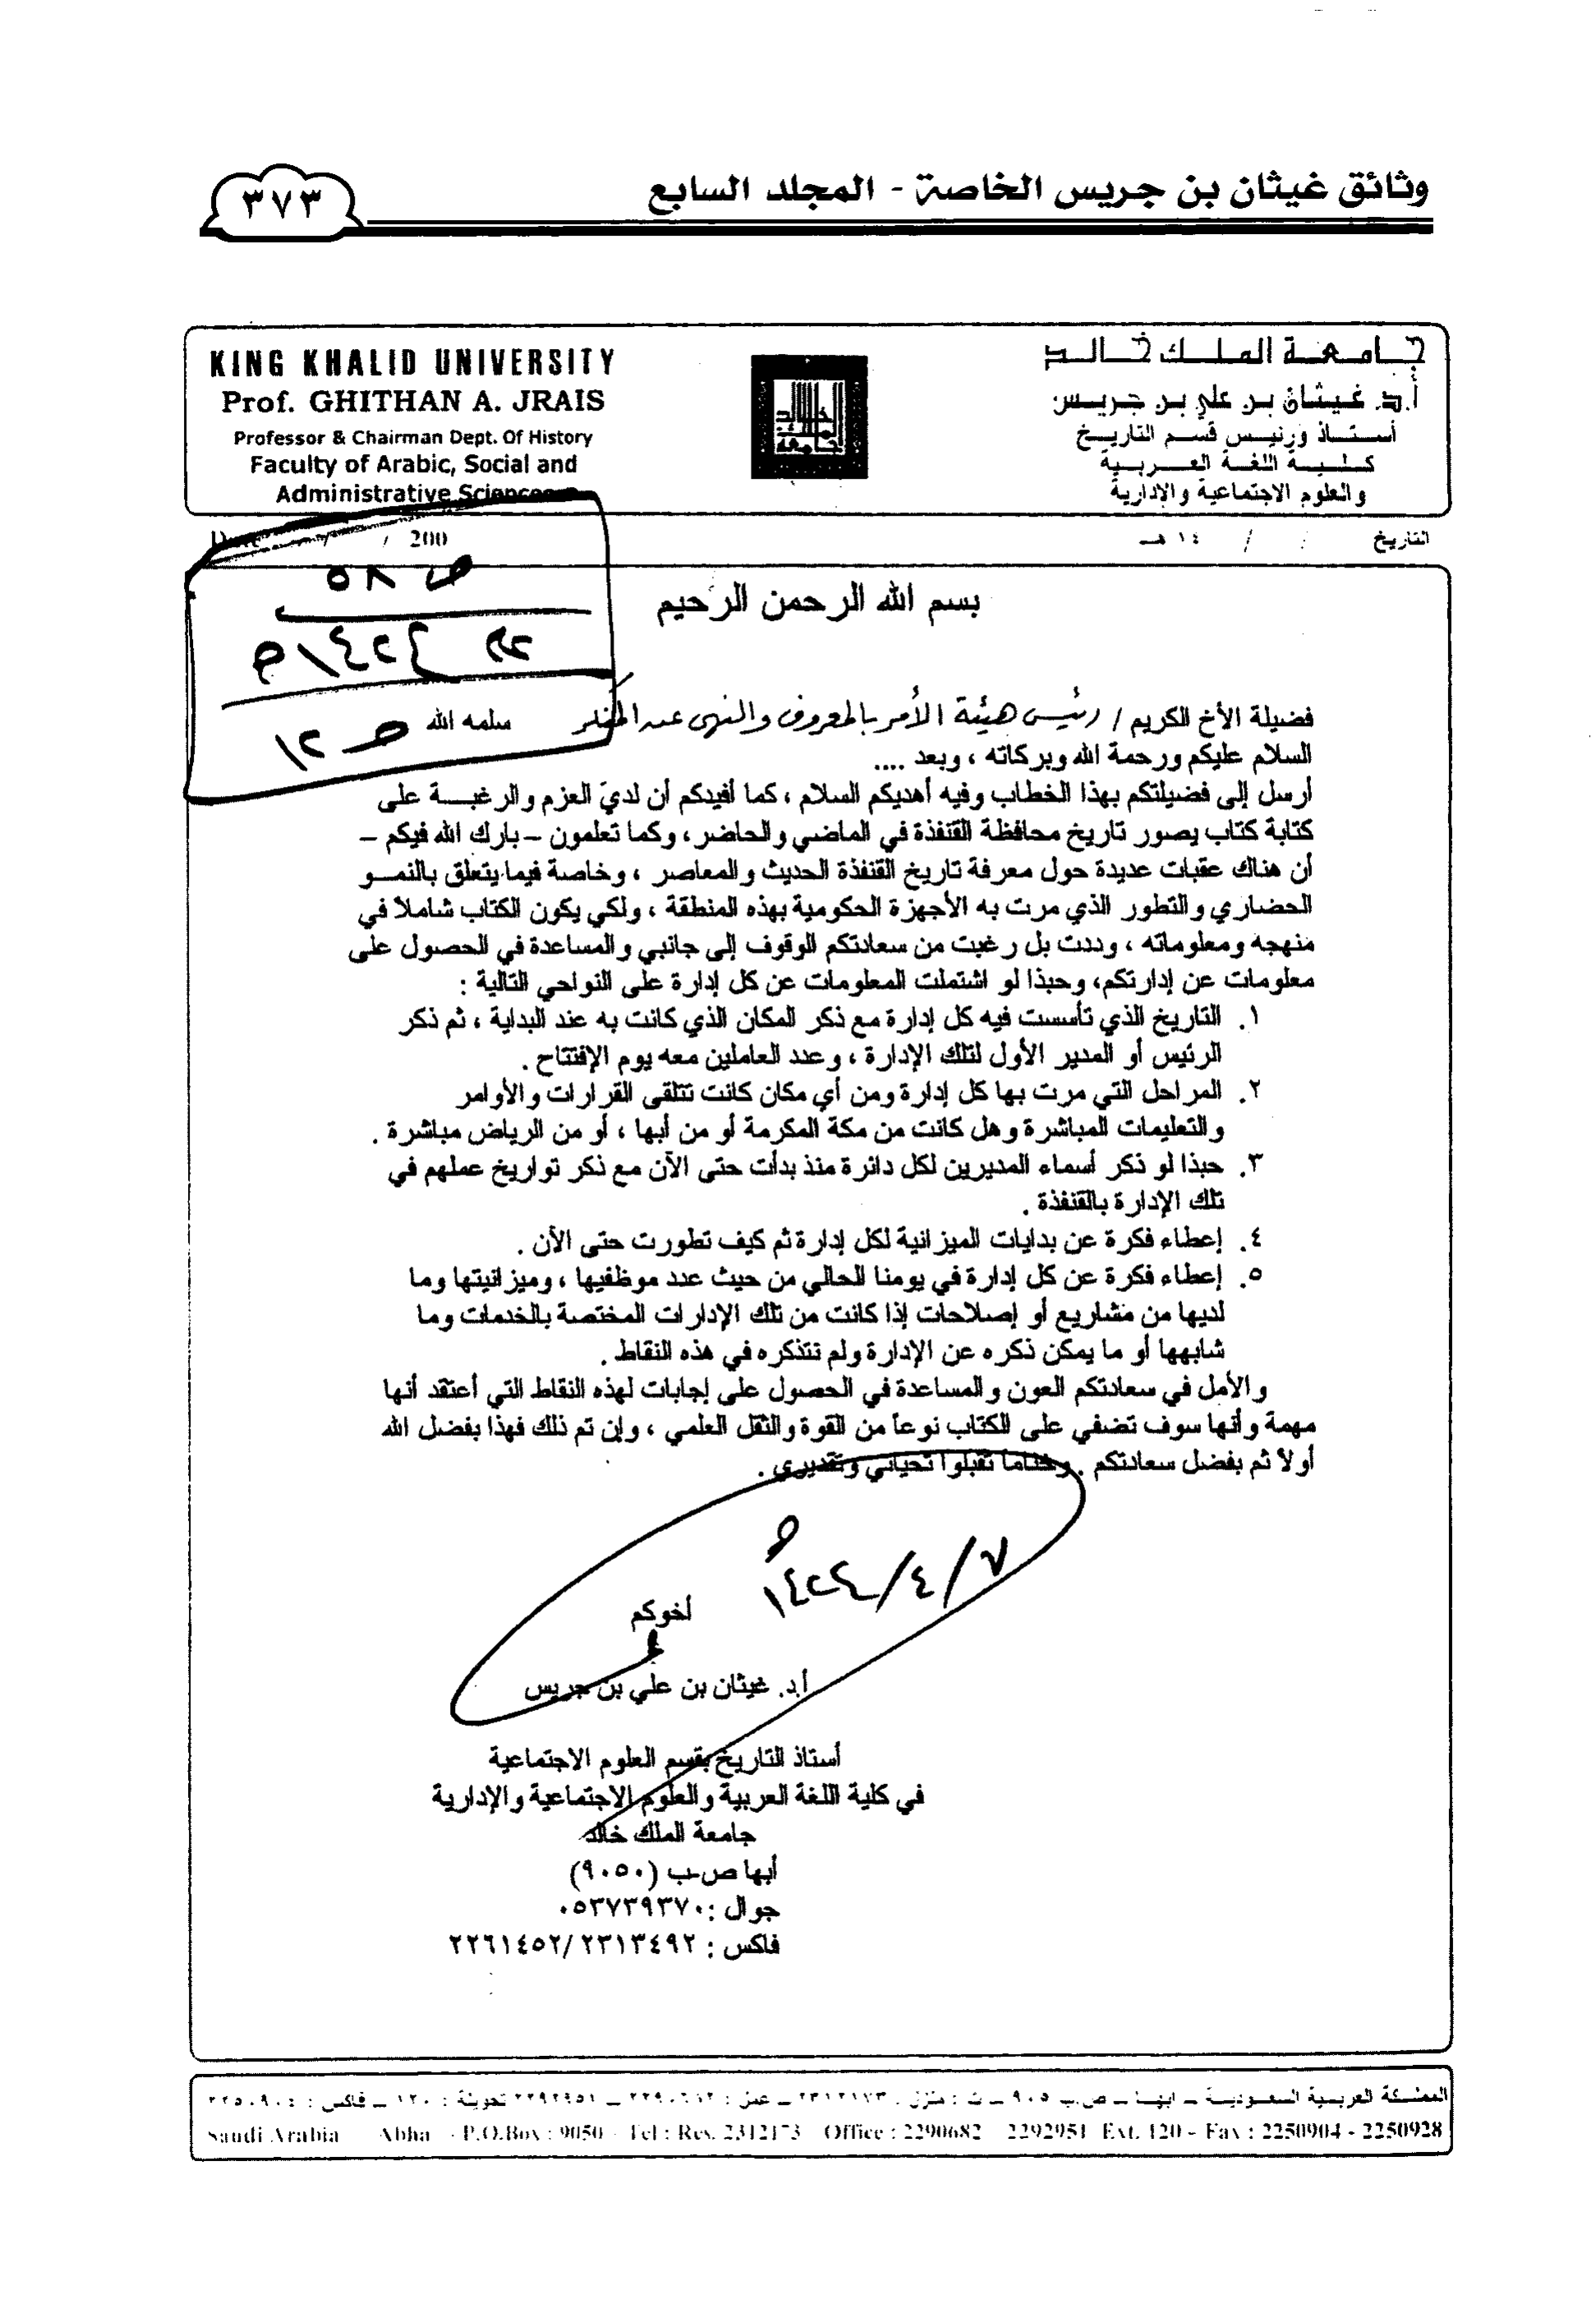 وثائق غيثان بن جريس الخاصة - المجلد السابع
٣٧٣
جامعة الملك خالد
أ.د. غيثان بن علي بن جريس
أستاذ ورئيس قسم التاريخ
كلية اللغة العربية
والعلوم الاجتماعية والإدارية
KING KHALID UNIVERSITY
Prof. GHITHAN A. JRAIS
Professor & Chairman Dept. Of History
Faculty of Arabic, Social and
Administrative Sciences
التاريخ / / ١٤ هـ
Date / / 200
ص ٥٨
ص ١٢
بسم الله الرحمن الرحيم
فضيلة الأخ الكريم / رئيس هيئة الأمر بالمعروف والنهي عن المنكر سلمه الله
السلام عليكم ورحمة الله وبركاته ، وبعد ....
أرسل إلى فضيلتكم بهذا الخطاب وفيه أهديكم السلام ، كما أفيدكم أن لديّ العزم والرغبة على
كتابة كتاب يصور تاريخ محافظة القنفذة في الماضي والحاضر ، وكما تعلمون – بارك الله فيكم –
أن هناك عقبات عديدة حول معرفة تاريخ القنفذة الحديث والمعاصر ، وخاصة فيما يتعلق بالنمو
الحضاري والتطور الذي مرت به الأجهزة الحكومية بهذه المنطقة ، ولكي يكون الكتاب شاملاً في
منهجه ومعلوماته ، وددت بل رغبت من سعادتكم الوقوف إلى جانبي والمساعدة في الحصول على
معلومات عن إدارتكم، وحبذا لو اشتملت المعلومات عن كل إدارة على النواحي التالية :
١. التاريخ الذي تأسست فيه كل إدارة مع ذكر المكان الذي كانت به عند البداية ، ثم ذكر
الرئيس أو المدير الأول لتلك الإدارة ، وعدد العاملين معه يوم الإفتتاح .
٢. المراحل التي مرت بها كل إدارة ومن أي مكان كانت تتلقى القرارات والأوامر
والتعليمات المباشرة وهل كانت من مكة المكرمة أو من أبها ، أو من الرياض مباشرة .
٣. حبذا لو ذكر أسماء المديرين لكل دائرة منذ بدأت حتى الآن مع ذكر تواريخ عملهم في
تلك الإدارة بالقنفذة .
٤. إعطاء فكرة عن بدايات الميزانية لكل إدارة ثم كيف تطورت حتى الآن .
٥. إعطاء فكرة عن كل إدارة في يومنا الحالي من حيث عدد موظفيها ، وميزانيتها وما
لديها من مشاريع أو إصلاحات إذا كانت من تلك الإدارات المختصة بالخدمات وما
شابهها أو ما يمكن ذكره عن الإدارة ولم نتذكره في هذه النقاط .
والأمل في سعادتكم العون والمساعدة في الحصول على إجابات لهذه النقاط التي أعتقد أنها
مهمة وأنها سوف تضفي على الكتاب نوعاً من القوة والثقل العلمي ، وإن تم ذلك فهذا بفضل الله
أولاً ثم بفضل سعادتكم . وختاماً تقبلوا تحياتي وتقديري .
٧/٤/١٤٢٤هـ
أخوكم
أ.د. غيثان بن علي بن جريس
أستاذ التاريخ بقسم العلوم الاجتماعية
في كلية اللغة العربية والعلوم الاجتماعية والإدارية
جامعة الملك خالد
أبها ص.ب (٩٠٥٠)
جوال : ٠٥٣٧٣٩٣٧٠
فاكس : ٢٢٦١٤٥٢/٢٣١٣٤٩٢
المملكة العربية السعودية – ابها – ص.ب ٩٠٥ – ت : منزل : ٢٣١٢١٧٣ – عمل : ٢٢٩٠٦٨٢ – ٢٢٩٢٩٥١ تحويلة : ١٢٠ – فاكس : ٢٢٥٠٩٠٤
Saudi Arabia Abha - P.O.Box : 9050 - Tel : Res. 2312173 Office : 2290682 2292951 Ext. 120 - Fax : 2250904 - 2250928